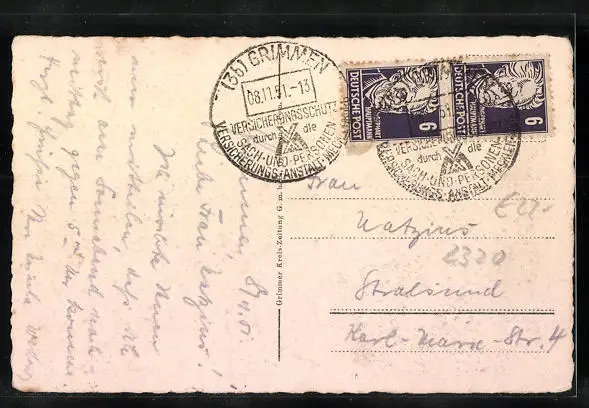 (3b) GRIMMEN
08.11.51.-13
VERSICHERUNGSSCHUTZ
durch die
SACH-UND-PERSONEN-
VERSICHERUNGS-ANSTALT MECKLENBURG
DEUTSCHE POST
GERHART HAUPTMANN
6
DEUTSCHE POST
GERHART HAUPTMANN
6
VERSICHERUNGSSCHUTZ
durch die
SACH-UND-PERSONEN-
VERSICHERUNGS-ANSTALT MECKLENBURG
Frau
Natzius
2320
Stralsund
Karl-Marx-Str. 4
Grimmer Kreis-Zeitung G. m. b.
Grimmen, 8.11.51.
Liebe Frau Natzius!
Ich möchte Ihnen
nun mitteilen, daß ich
erst am Sonnabend nach-
mittag gegen 5 Uhr komme.
Herzl. Grüße Ihre